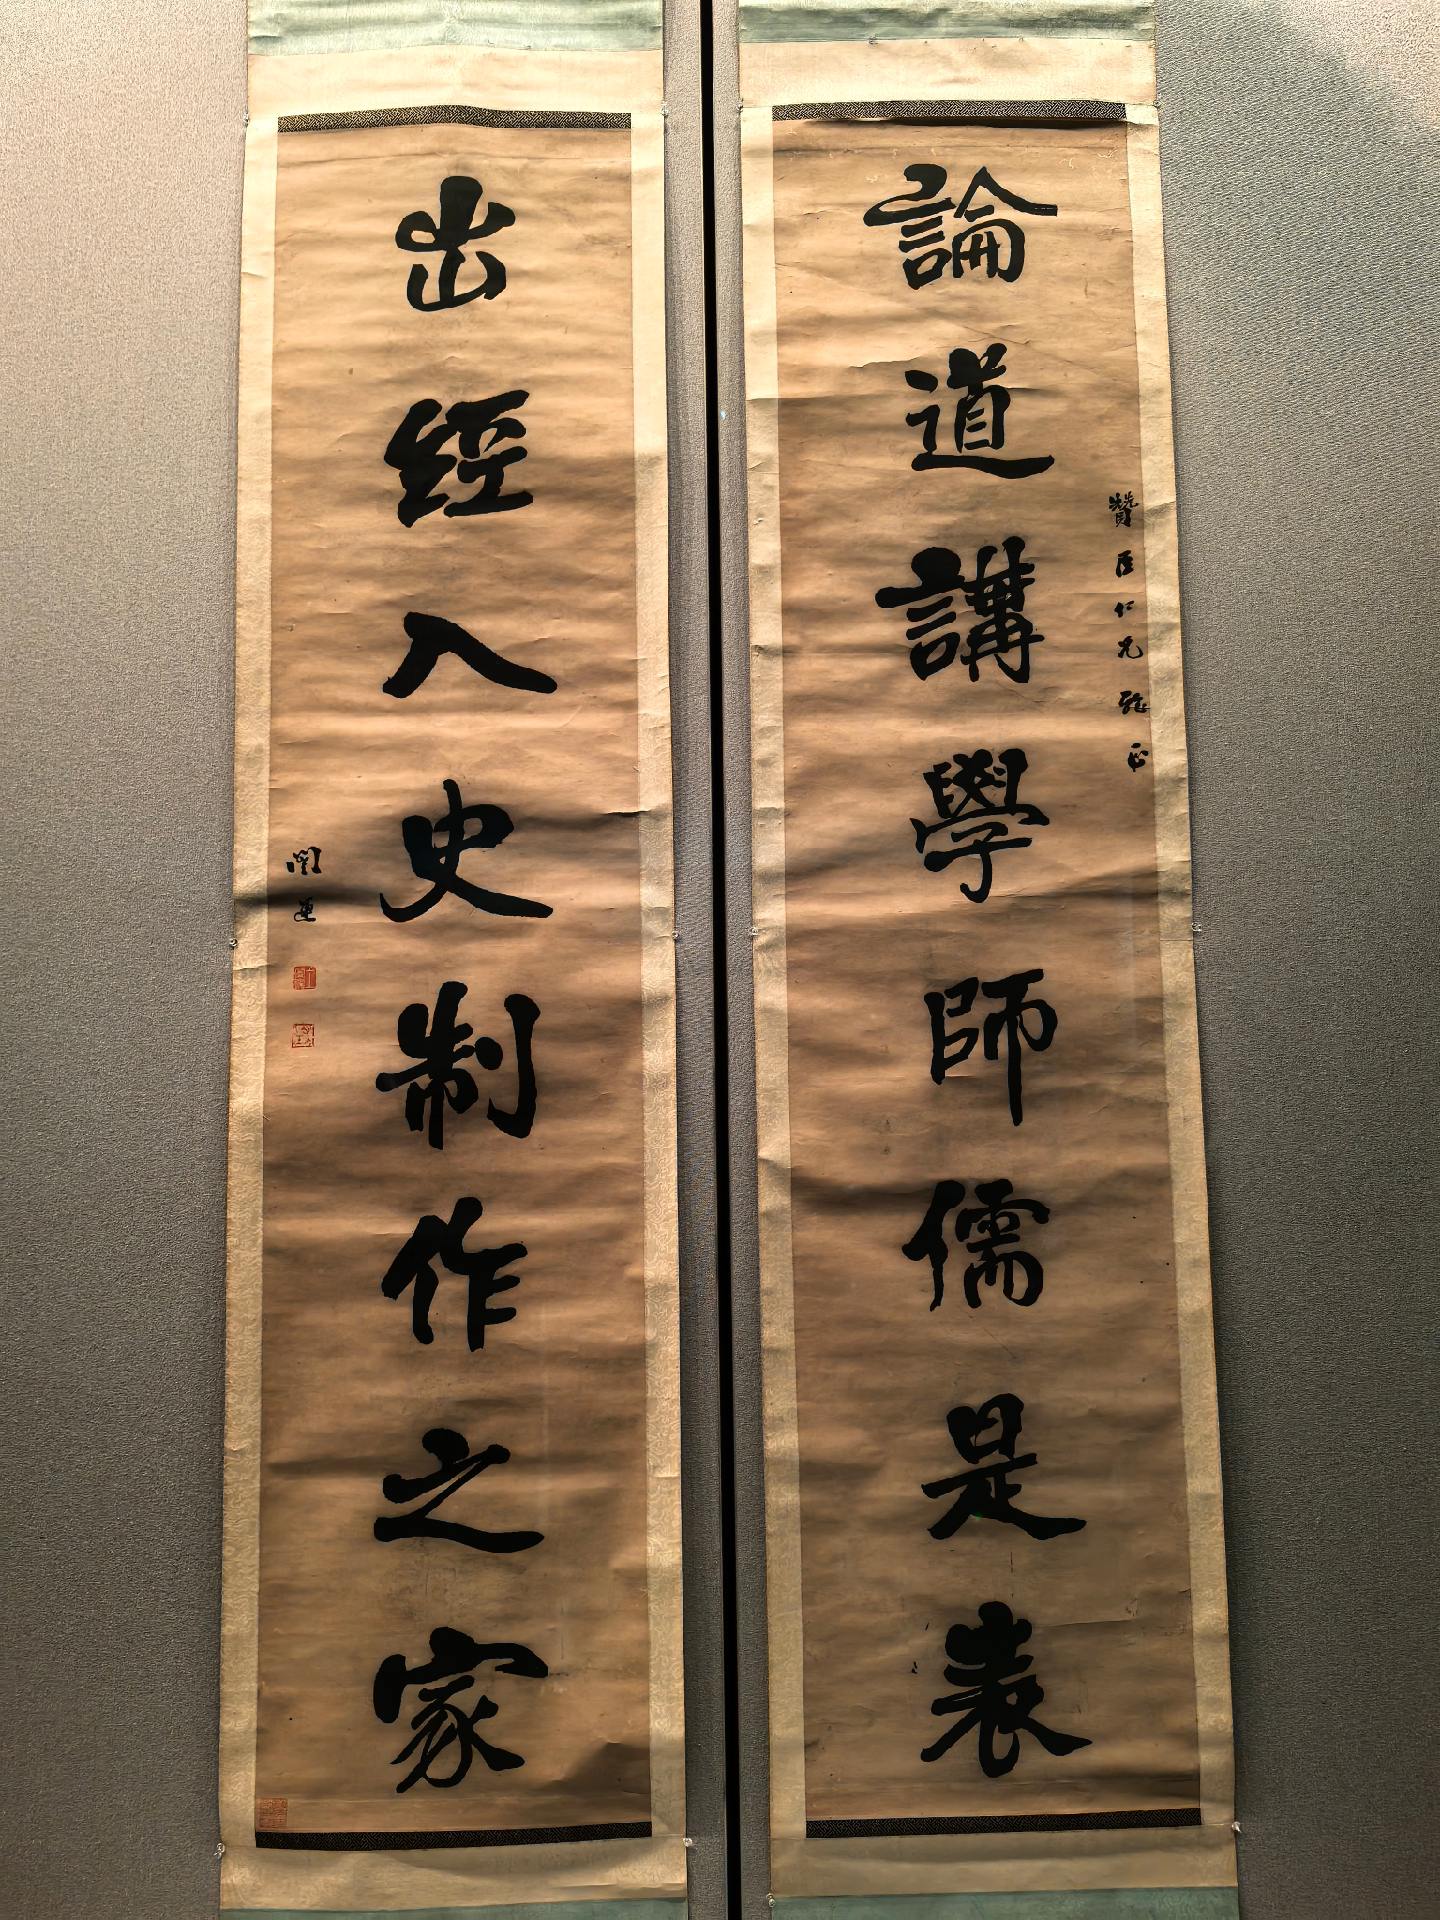 論道講學師儒是表
贊臣仁兄雅正
出經入史制作之家
闓運